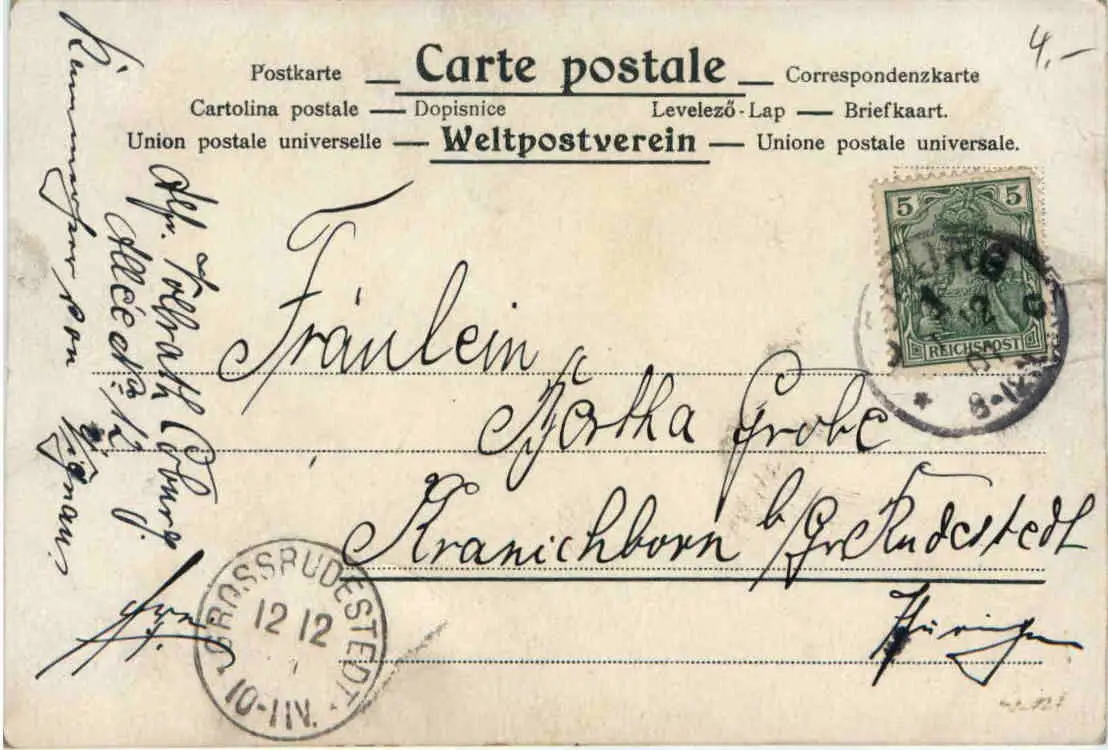 Carte postale
Postkarte — Correspondenzkarte
Cartolina postale — Dopisnice Levelező-Lap — Briefkaart.
Union postale universelle — Weltpostverein — Unione postale universale.
4,-
5 5
REICHSPOST
12
8-12
Fräulein
Bertha Grobe
Kranichborn b/Gr Rudestedt
Thüringen
Alfr. Vollrath Coburg
Allée No 12
von
GROSSRUDESTEDT
12 12
10-11V.